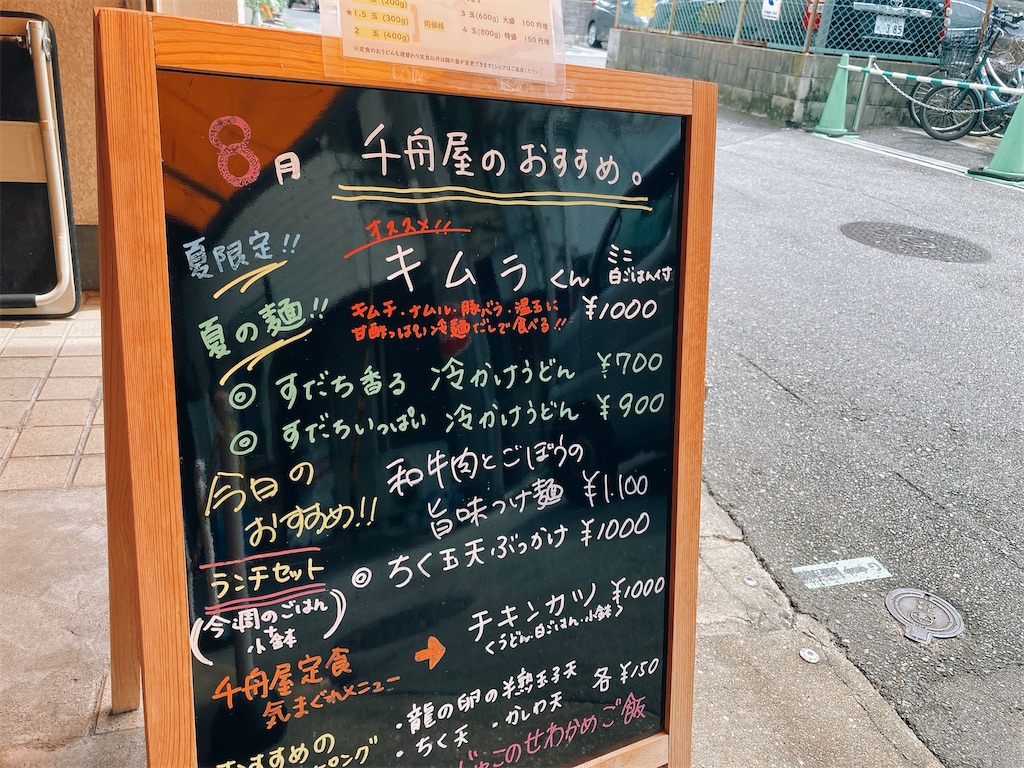 ★1.5 玉 (300g)
2 玉 (400g)
同価格
3 玉 (600g) 大盛 100円増
4 玉 (800g) 特盛 150円増
8月 千舟屋のおすすめ。
夏限定!!
オススメ!!
キムラくん ミニ白ごはん付
キムチ・ナムル・豚バラ・温玉に
甘酢っぱい冷麺だしで食べる!! ¥1000
夏の麺!!
◎ すだち香る 冷かけうどん ¥700
◎ すだちいっぱい 冷かけうどん ¥900
今日の
おすすめ!!
和牛肉とごぼうの
旨味つけ麺 ¥1.100
◎ ちく玉天ぶっかけ ¥1000
ランチセット
(今週のごはん
小鉢)
チキンカツ ¥1000
(うどん・白ごはん・小鉢)
千舟屋定食
気まぐれメニュー
・龍の卵の半熟玉子天 各¥150
・ちく天 ・かしわ天
おすすめの
じゃこのせわかめご飯